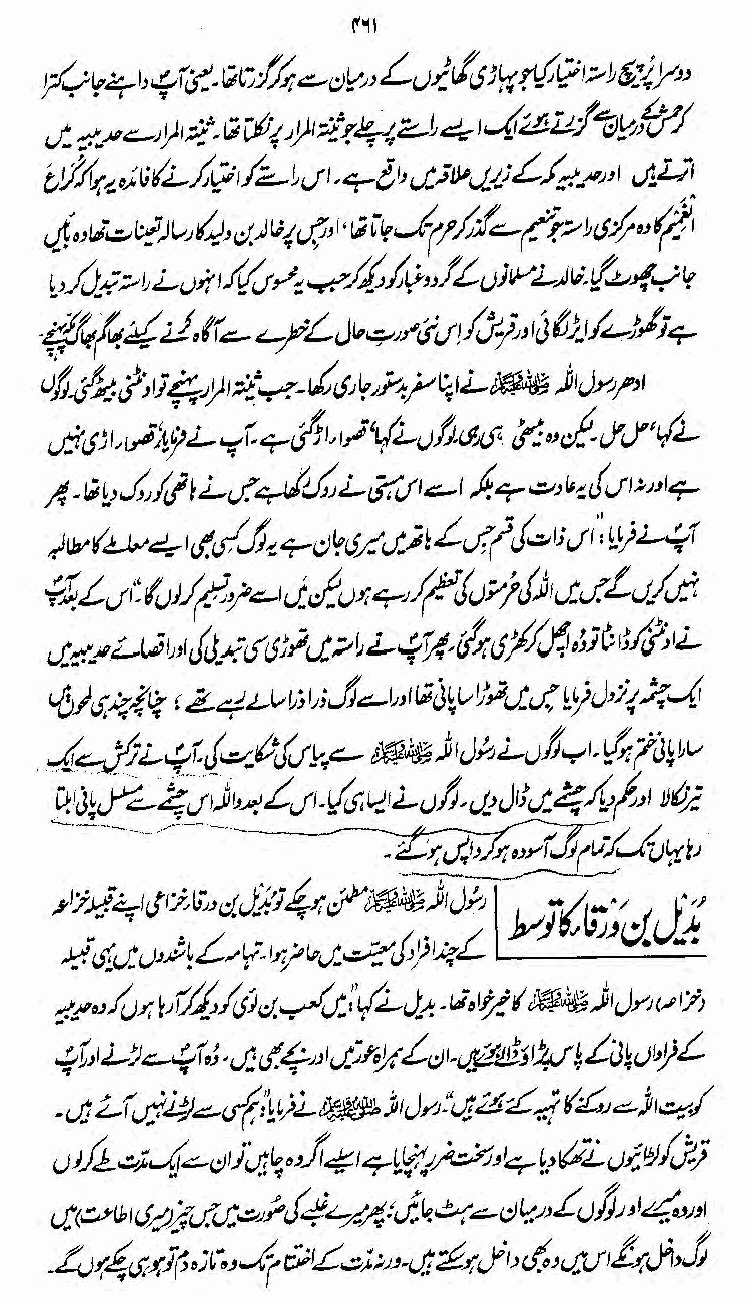 ۴۶۱
دوسرا پُر پیچ راستہ اختیار کیا جو پہاڑی گھاٹیوں کے درمیان سے ہو کر گزرتا تھا۔ یعنی آپؐ داہنے جانب کترا
کر حمش کے درمیان سے گزرتے ہوئے ایک ایسے راستے پر چلے جو ثنیۃ المرار پر نکلتا تھا۔ ثنیۃ المرار سے حدیبیہ میں
اترتے ہیں اور حدیبیہ مکہ کے زیریں علاقہ میں واقع ہے۔ اس راستے کو اختیار کرنے کا فائدہ یہ ہوا کہ کُراع
الغمیم کا وہ مرکزی راستہ جو تنعیم سے گذر کر حرم تک جاتا تھا، اور جس پر خالد بن ولید کا رسالہ تعینات تھا وہ بائیں
جانب چھوٹ گیا۔ خالد نے مسلمانوں کے گرد و غبار کو دیکھ کر جب یہ محسوس کیا کہ انہوں نے راستہ تبدیل کر دیا
ہے تو گھوڑے کو ایڑ لگائی اور قریش کو اس نئی صورت حال کے خطرے سے آگاہ کرنے کیلئے بھاگم بھاگ مکہ پہنچے۔
ادھر رسول اللہ ﷺ نے اپنا سفر بدستور جاری رکھا۔ جب ثنیۃ المرار پہنچے تو اونٹنی بیٹھ گئی۔ لوگوں
نے کہا، حل حل۔ لیکن وہ بیٹھی ہی رہی۔ لوگوں نے کہا، قصواء اڑ گئی ہے۔ آپ نے فرمایا، قصواء اڑی نہیں
ہے اور نہ اس کی یہ عادت ہے بلکہ اسے اس ہستی نے روک رکھا ہے جس نے ہاتھی کو روک دیا تھا۔ پھر
آپؐ نے فرمایا: "اس ذات کی قسم جس کے ہاتھ میں میری جان ہے یہ لوگ کسی بھی ایسے معاملے کا مطالبہ
نہیں کریں گے جس میں اللہ کی حُرمتوں کی تعظیم کر رہے ہوں لیکن میں اسے ضرور تسلیم کر لوں گا۔" اس کے بعد آپؐ
نے اونٹنی کو ڈانٹا تو وہ اچھل کر کھڑی ہو گئی۔ پھر آپؐ نے راستہ میں تھوڑی سی تبدیلی کی اور اقصائے حدیبیہ میں
ایک چشمہ پر نزول فرمایا جس میں تھوڑا سا پانی تھا اور اسے لوگ ذرا ذرا سا لے رہے تھے؛ چنانچہ چند ہی لمحوں میں
سارا پانی ختم ہو گیا۔ اب لوگوں نے رسُول اللہ ﷺ سے پیاس کی شکایت کی۔ آپؐ نے ترکش سے ایک
تیر نکالا اور حکم دیا کہ چشمے میں ڈال دیں۔ لوگوں نے ایسا ہی کیا۔ اس کے بعد واللہ اس چشمے سے مسلسل پانی ابلتا
رہا یہاں تک کہ تمام لوگ آسودہ ہو کر واپس ہو گئے۔
بُدَیْل بن وَرْقاء کا توسط
رسُول اللہ ﷺ مطمئن ہو چکے تو بُدَیْل بن ورقاء خزاعی اپنے قبیلہ خزاعہ
کے چند افراد کی معیّت میں حاضر ہوا۔ تہامہ کے باشندوں میں یہی قبیلہ
(خزاعہ) رسول اللہ ﷺ کا خیر خواہ تھا۔ بدیل نے کہا: "میں کعب بن لوئ کو دیکھ کر آ رہا ہوں کہ وہ حدیبیہ
کے فراواں پانی کے پاس پڑاؤ ڈالے ہوئے ہیں۔ ان کے ہمراہ عورتیں اور بچے بھی ہیں۔ وُہ آپؐ سے لڑنے اور آپؐ
کو بیت اللہ سے روکنے کا تہیہ کئے ہوئے ہیں"۔ رسول اللہ ﷺ نے فرمایا: "ہم کسی سے لڑنے نہیں آئے ہیں۔
قریش کو لڑائیوں نے تھکا دیا ہے اور سخت ضرر پہنچایا ہے اسلیے اگر وہ چاہیں تو ان سے ایک مدّت طے کر لوں
اور وہ میرے اور لوگوں کے درمیان سے ہٹ جائیں؛ پھر میرے غلبے کی صُورت میں جس چیز (میری اطاعت) میں
لوگ داخل ہونگے اس میں وہ بھی داخل ہو سکتے ہیں۔ ورنہ مدّت کے اختتام تک وہ تازہ دم تو ہو ہی چکے ہوں گے۔